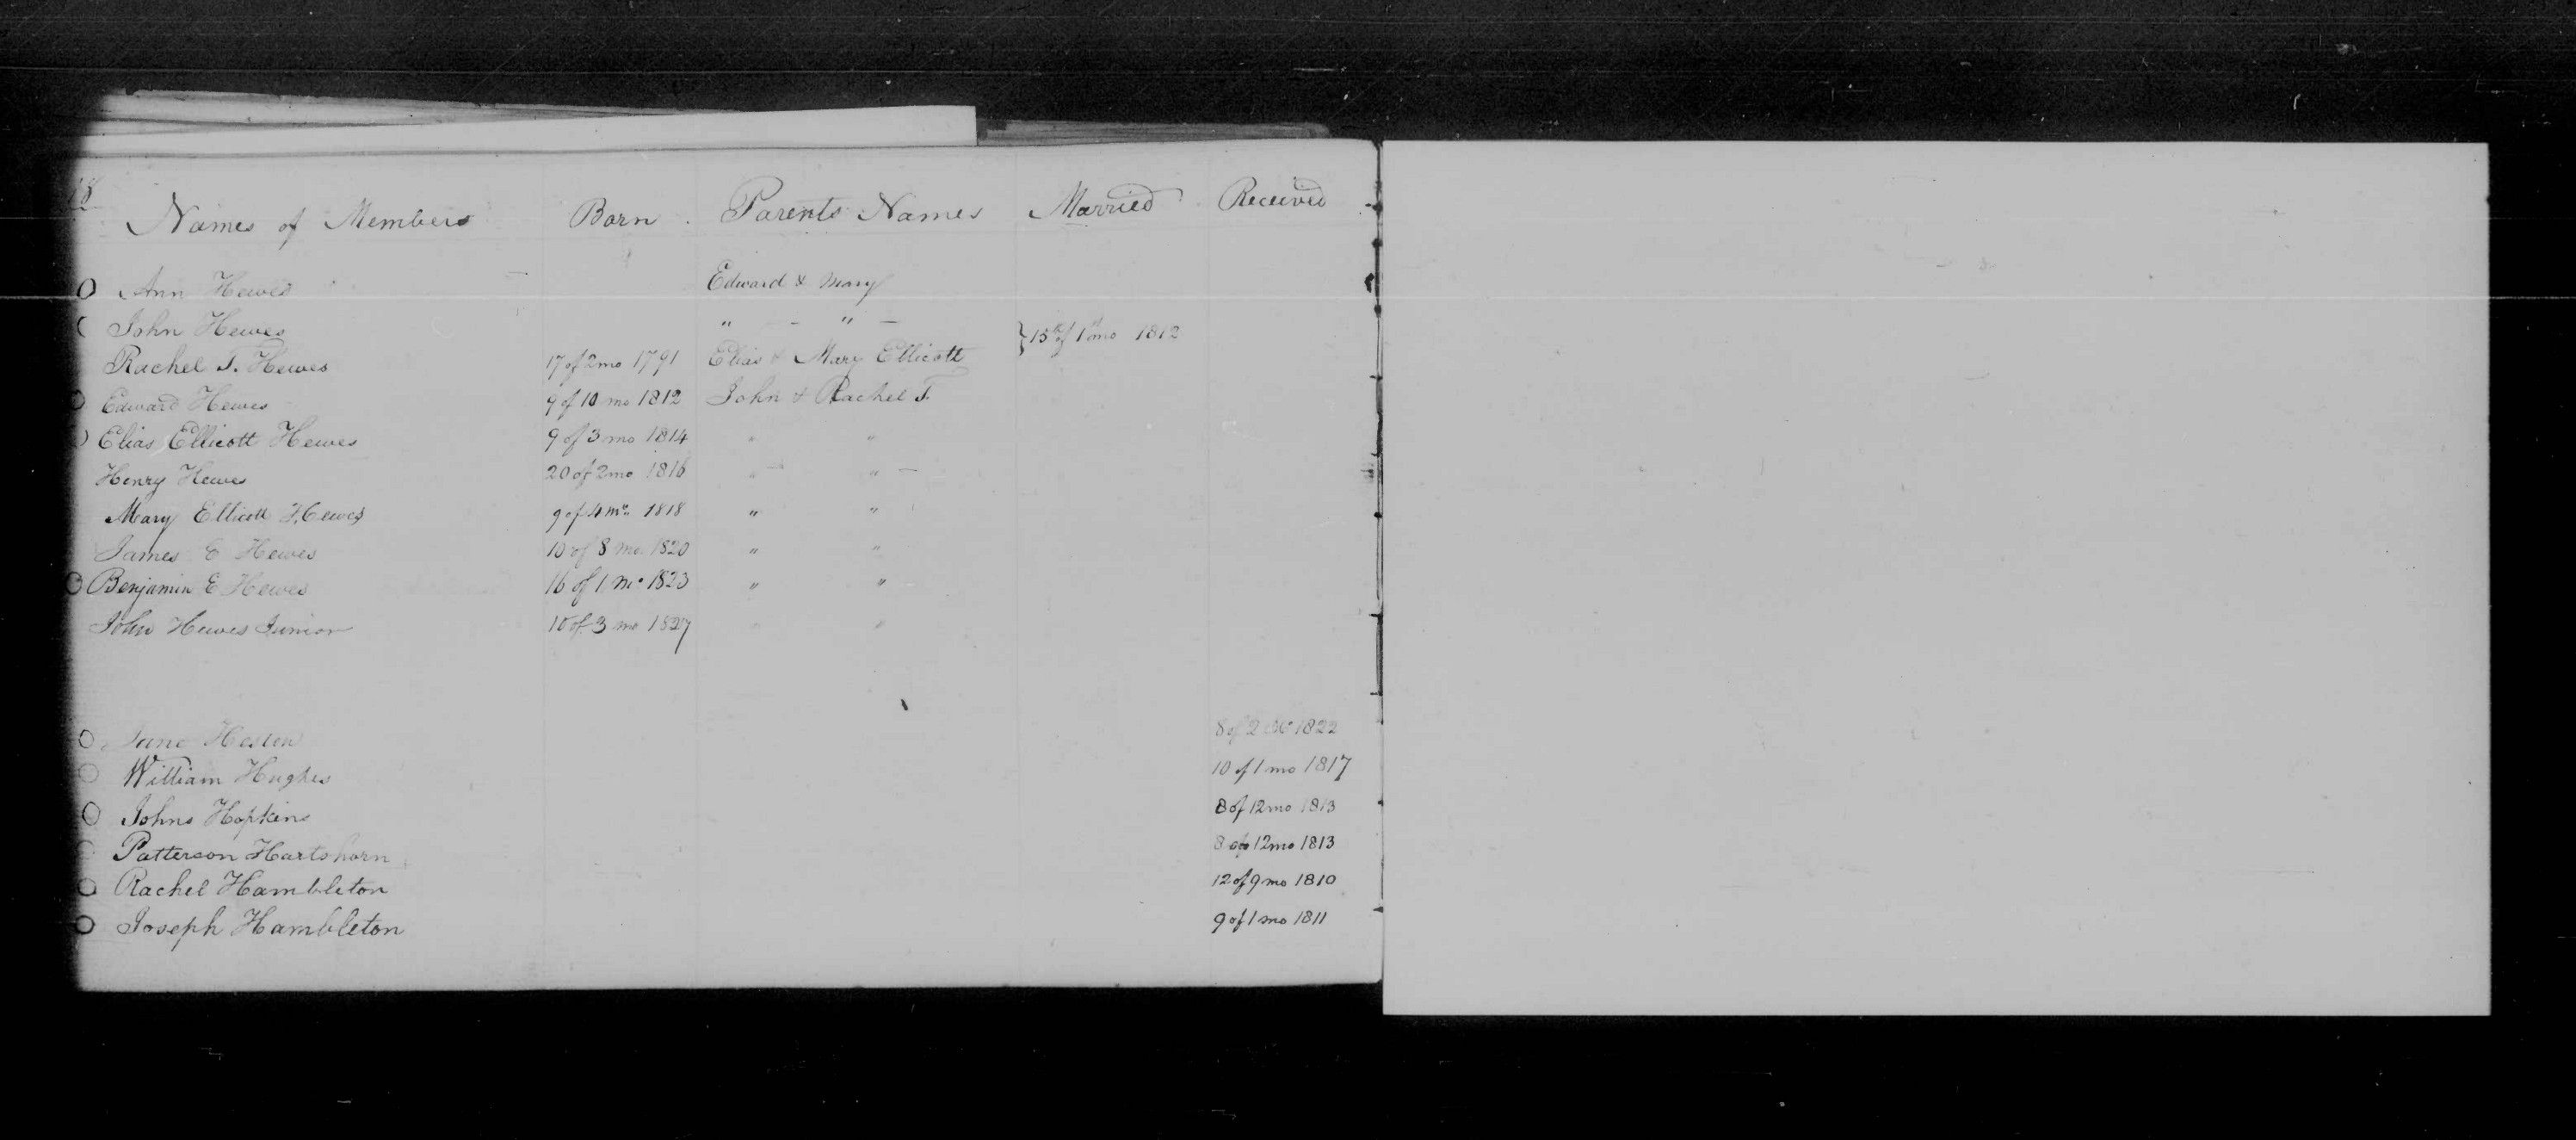 18
Names of Members Born Parents Names Married Received
Ann Hewes Edward & Mary
John Hewes " - " - } 15th of 1st mo 1812
Rachel T. Hewes 17 of 2mo 1791 Elias & Mary Ellicott
Edward Hewes 9 of 10 mo 1812 John & Rachel T.
Elias Ellicott Hewes 9 of 3 mo 1814 " "
Henry Hewes 20 of 2mo 1816 " - " -
Mary Ellicott Hewes 9 of 4 mo 1818 " "
James E Hewes 10 of 8 mo 1820 " "
Benjamin E Hewes 16 of 1 mo 1823 " "
John Hewes Junior 10 of 3 mo 1827 " "
Jane Heston 8 of 2 mo 1822
William Hughes 10 of 1 mo 1817
Johns Hopkins 8 of 12mo 1813
Patterson Hartshorn 8 of 12mo 1813
Rachel Hambleton 12 of 9 mo 1810
Joseph Hambleton 9 of 1 mo 1811